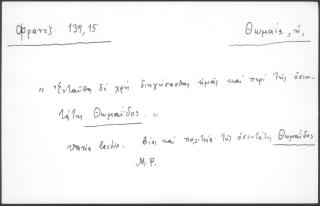 Φραντζ. 139, 15
Θωμαΐς, ἡ,
„ Ἐνταῦθα δὲ χρὴ διηγήσασθαι ἡμᾶς καὶ περὶ τῆς ὁσιω-
τάτης Θωμαΐδος. „
varia lectio: Βίος καὶ πολιτεία τῆς ὁσιωτάτης Θωμαΐδος
M.P.